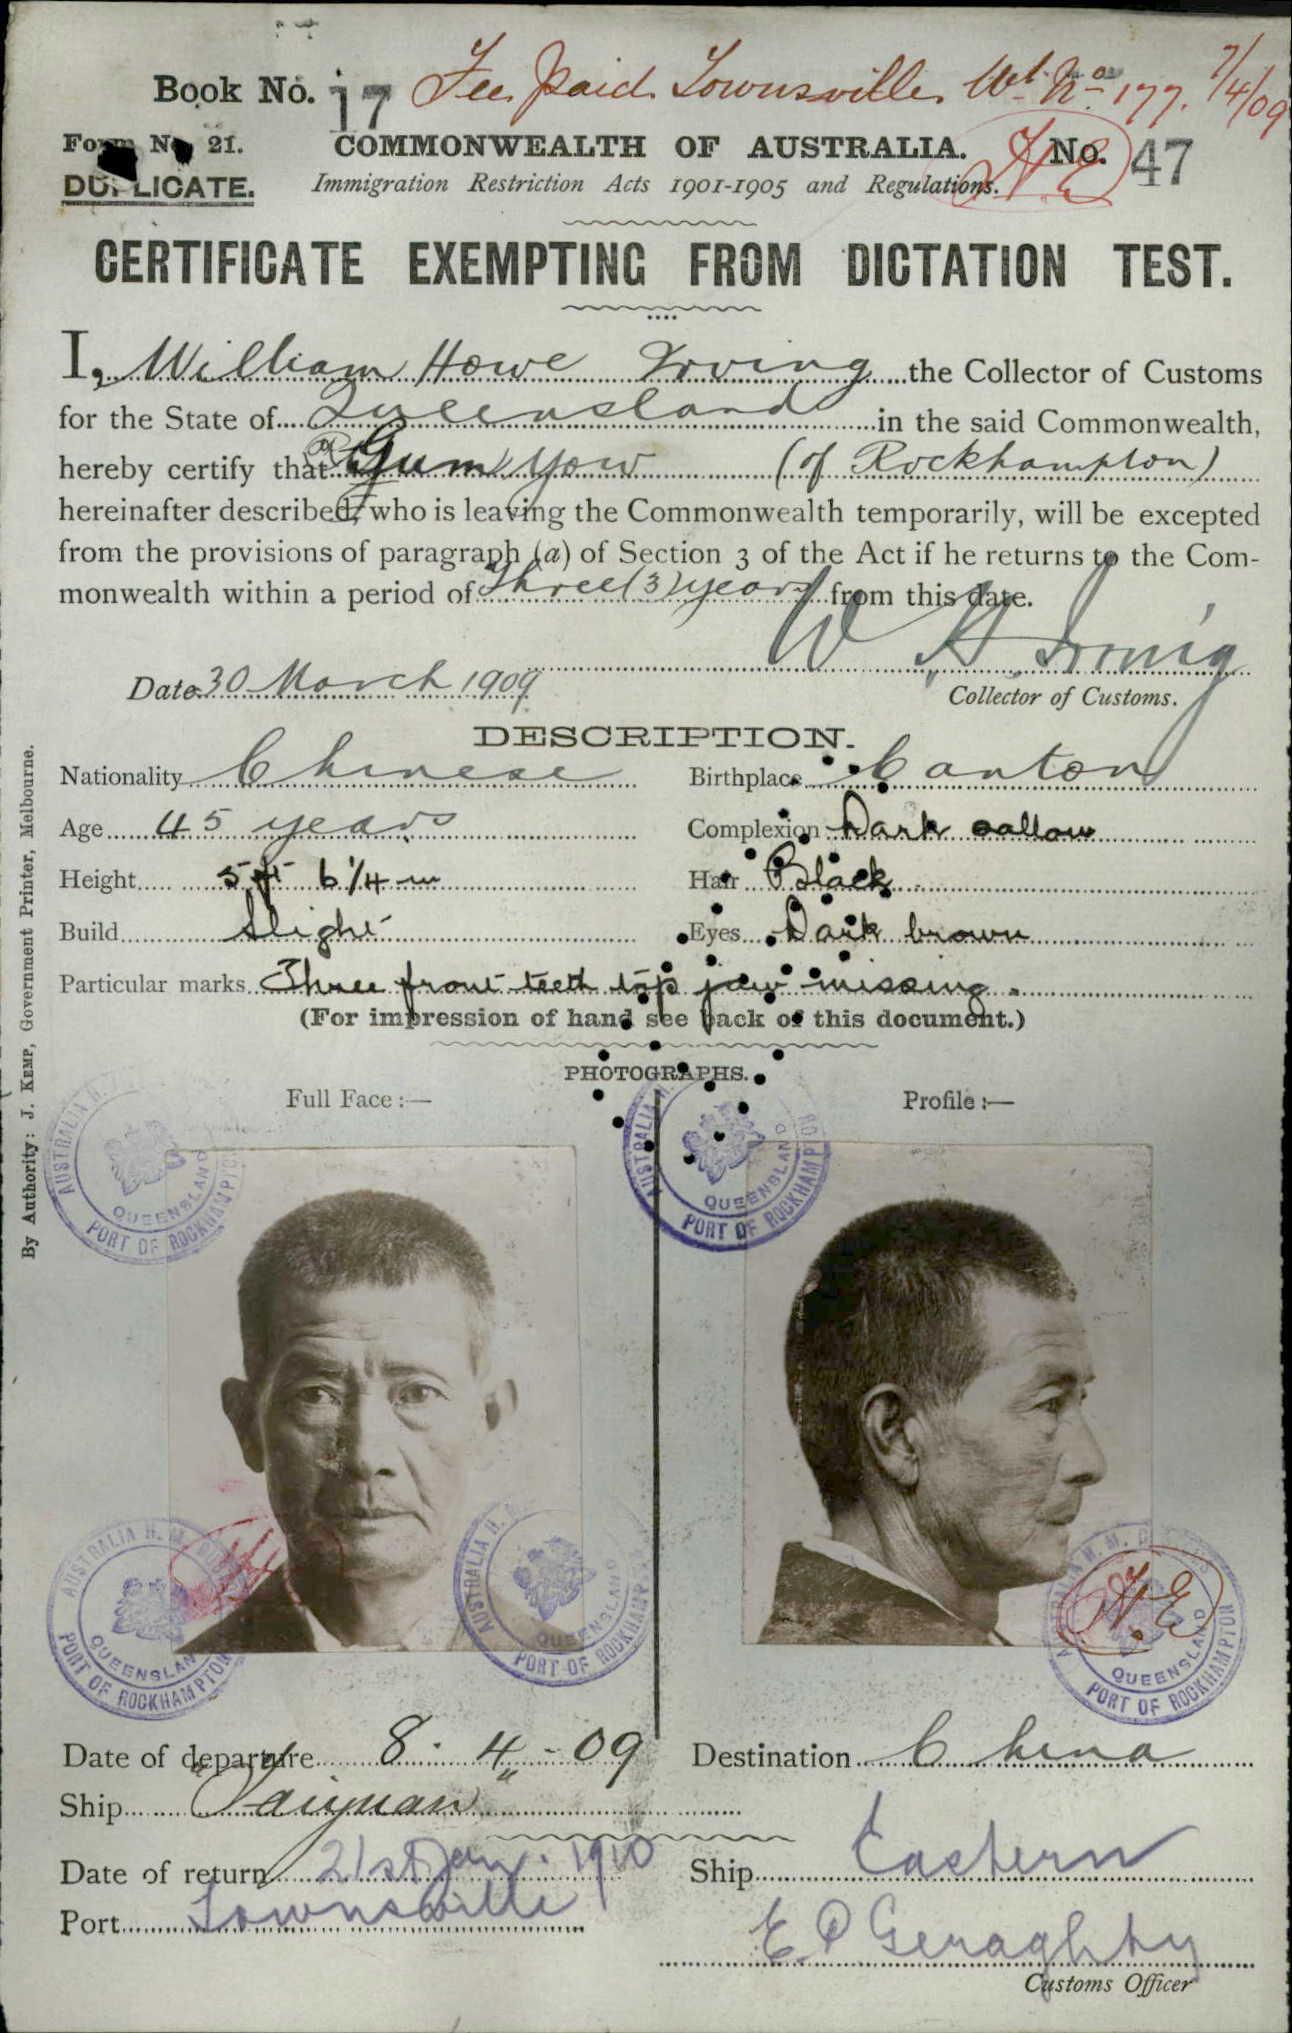 Book No. 17 Fee Paid Townsville Wt. No. 177. 7/4/09
Form No. 21. COMMONWEALTH OF AUSTRALIA. No. 47
DUPLICATE. Immigration Restriction Acts 1901-1905 and Regulations. H.E
CERTIFICATE EXEMPTING FROM DICTATION TEST.
I, William Howe Irving the Collector of Customs
for the State of Queensland in the said Commonwealth,
hereby certify that Gum Yow (of Rockhampton)
hereinafter described, who is leaving the Commonwealth temporarily, will be excepted
from the provisions of paragraph (a) of Section 3 of the Act if he returns to the Com-
monwealth within a period of Three (3) years from this date.
W H Irving
Date 30 March 1909
Collector of Customs.
DESCRIPTION.
Nationality Chinese Birthplace Canton
Age 45 years Complexion Dark sallow
Height 5 ft 6 1/4 in Hair Black
Build Slight Eyes Dark brown
Particular marks Three front teeth top jaw missing.
(For impression of hand see back of this document.)
PHOTOGRAPHS.
Full Face :— Profile :—
By Authority: J. KEMP, Government Printer, Melbourne.
AUSTRALIA H. QUEENSLAND PORT OF ROCKHAMPTON
AUSTRALIA H. QUEENSLAND PORT OF ROCKHAMPTON
AUSTRALIA H. M. QUEENSLAND PORT OF ROCKHAMPTON
AUSTRALIA H. QUEENSLAND PORT OF ROCKHAMPTON
AUSTRALIA H. M. QUEENSLAND PORT OF ROCKHAMPTON
H.E
Date of departure 8 . 4 . 09 Destination China
Ship "Taiyuan"
Date of return 21st Jan. 1910 Ship Eastern
Port Townsville
E. P Geraghty
Customs Officer